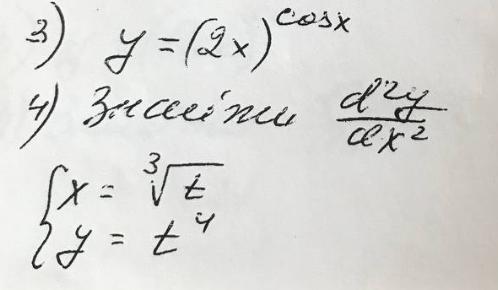 3) y = (2x)^cosx
4) Знайти d²y/dx²
{x = ∛t
{y = t⁴